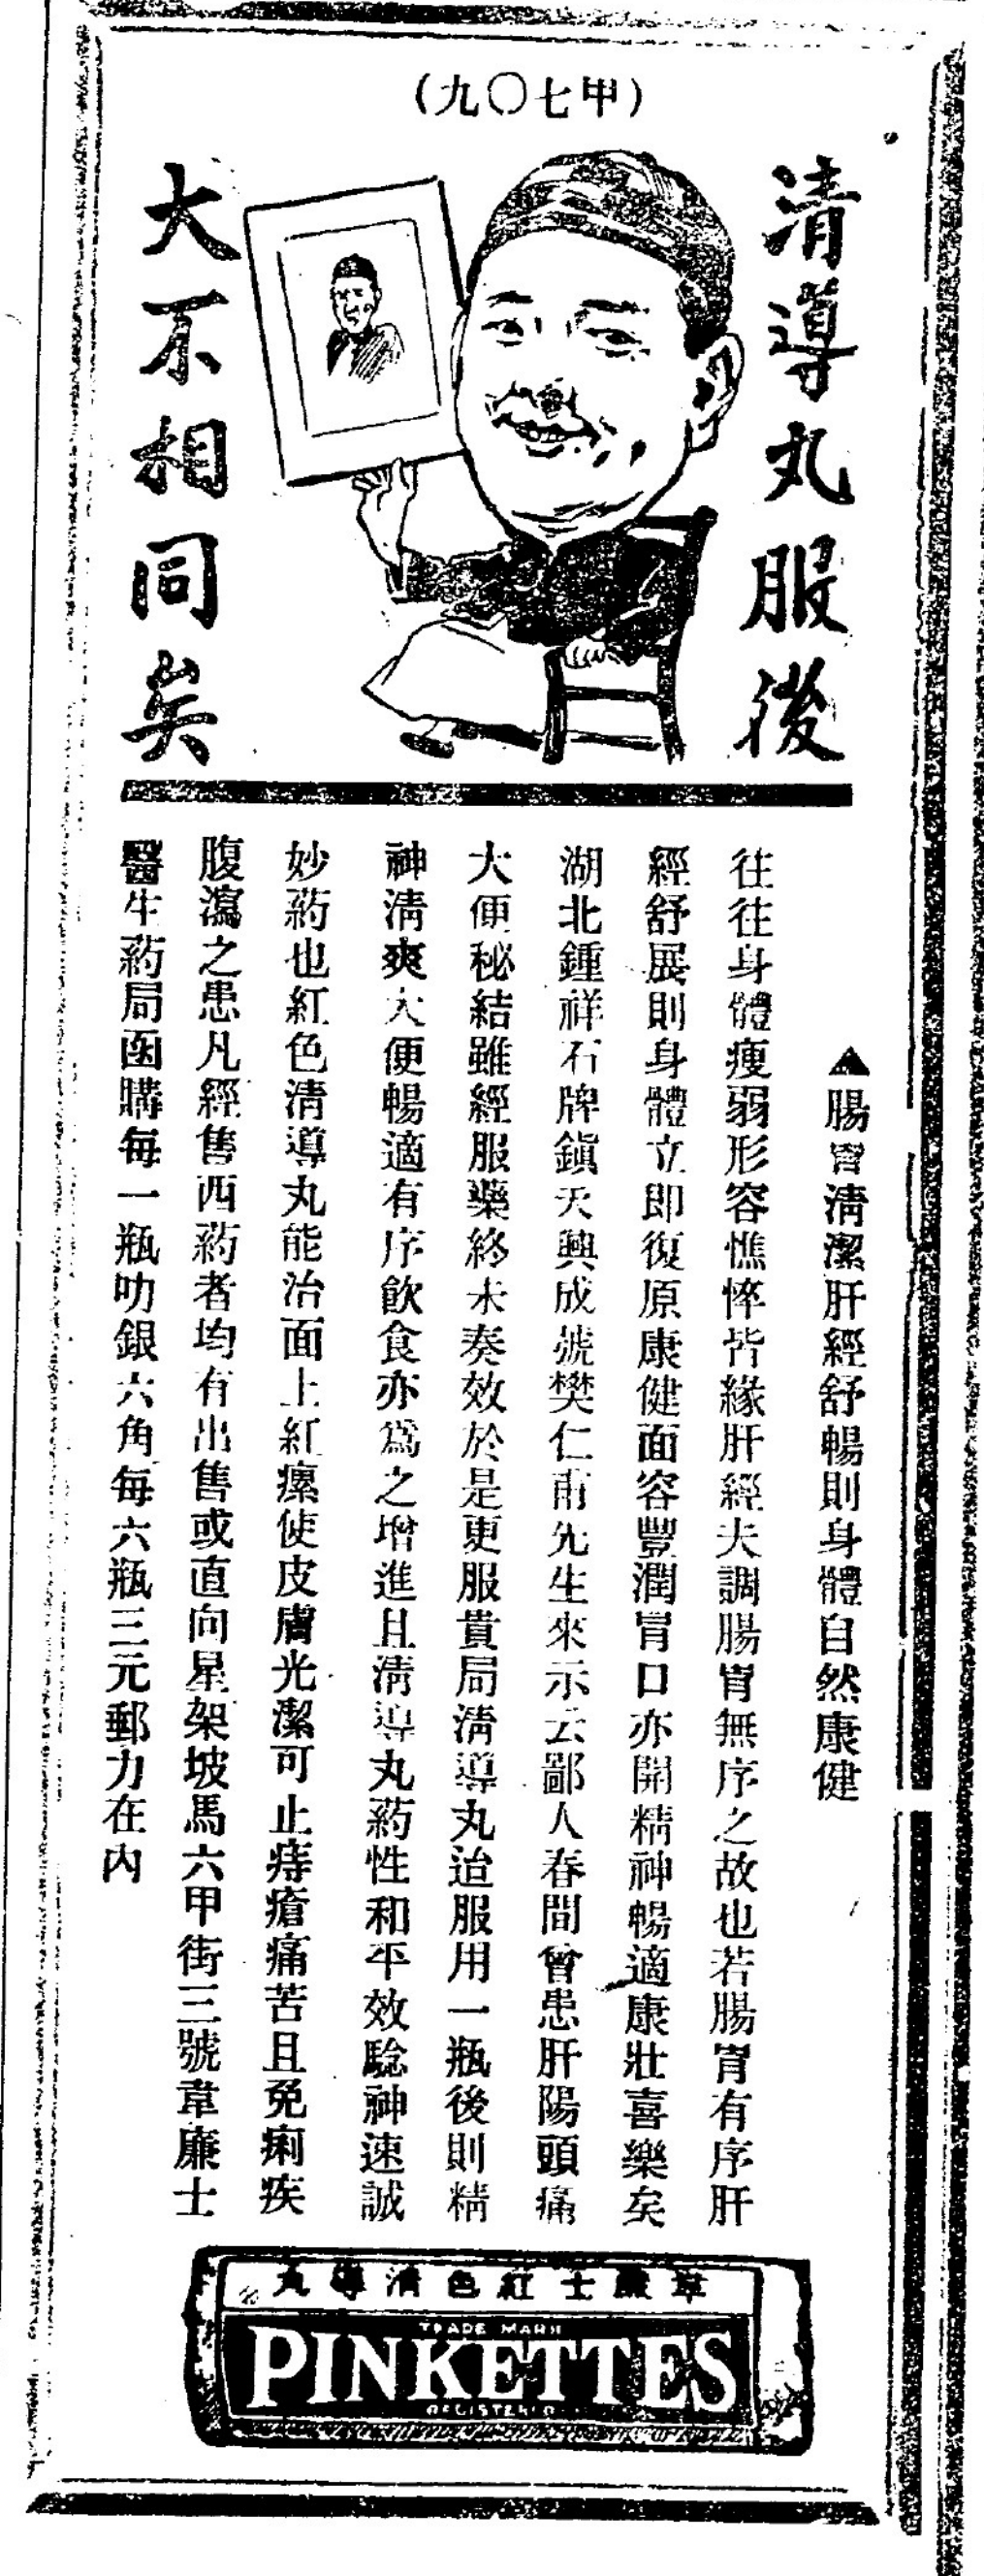 (甲七〇九)
清導丸服後
大不相同矣
▲腸胃清潔肝經舒暢則身體自然康健
往往身體瘦弱形容憔悴皆緣肝經失調腸胃無序之故也若腸胃有序肝
經舒展則身體立即復原康健面容豐潤胃口亦開精神暢適康壯喜樂矣
湖北鍾祥石牌鎭天興成號樊仁甫先生來示云鄙人春間曾患肝陽頭痛
大便秘結雖經服藥終未奏效於是更服貴局清導丸迨服用一瓶後則精
神清爽大便暢適有序飲食亦爲之增進且清導丸葯性和平效騐神速誠
妙葯也紅色清導丸能治面上紅瘰使皮膚光潔可止痔瘡痛苦且免痢疾
腹瀉之患凡經售西葯者均有出售或直向星架坡馬六甲街三號韋廉士
醫生葯局函購每一瓶叻銀六角每六瓶三元郵力在內
韋廉士紅色清導丸
TRADE MARK
PINKETTES
REGISTERED